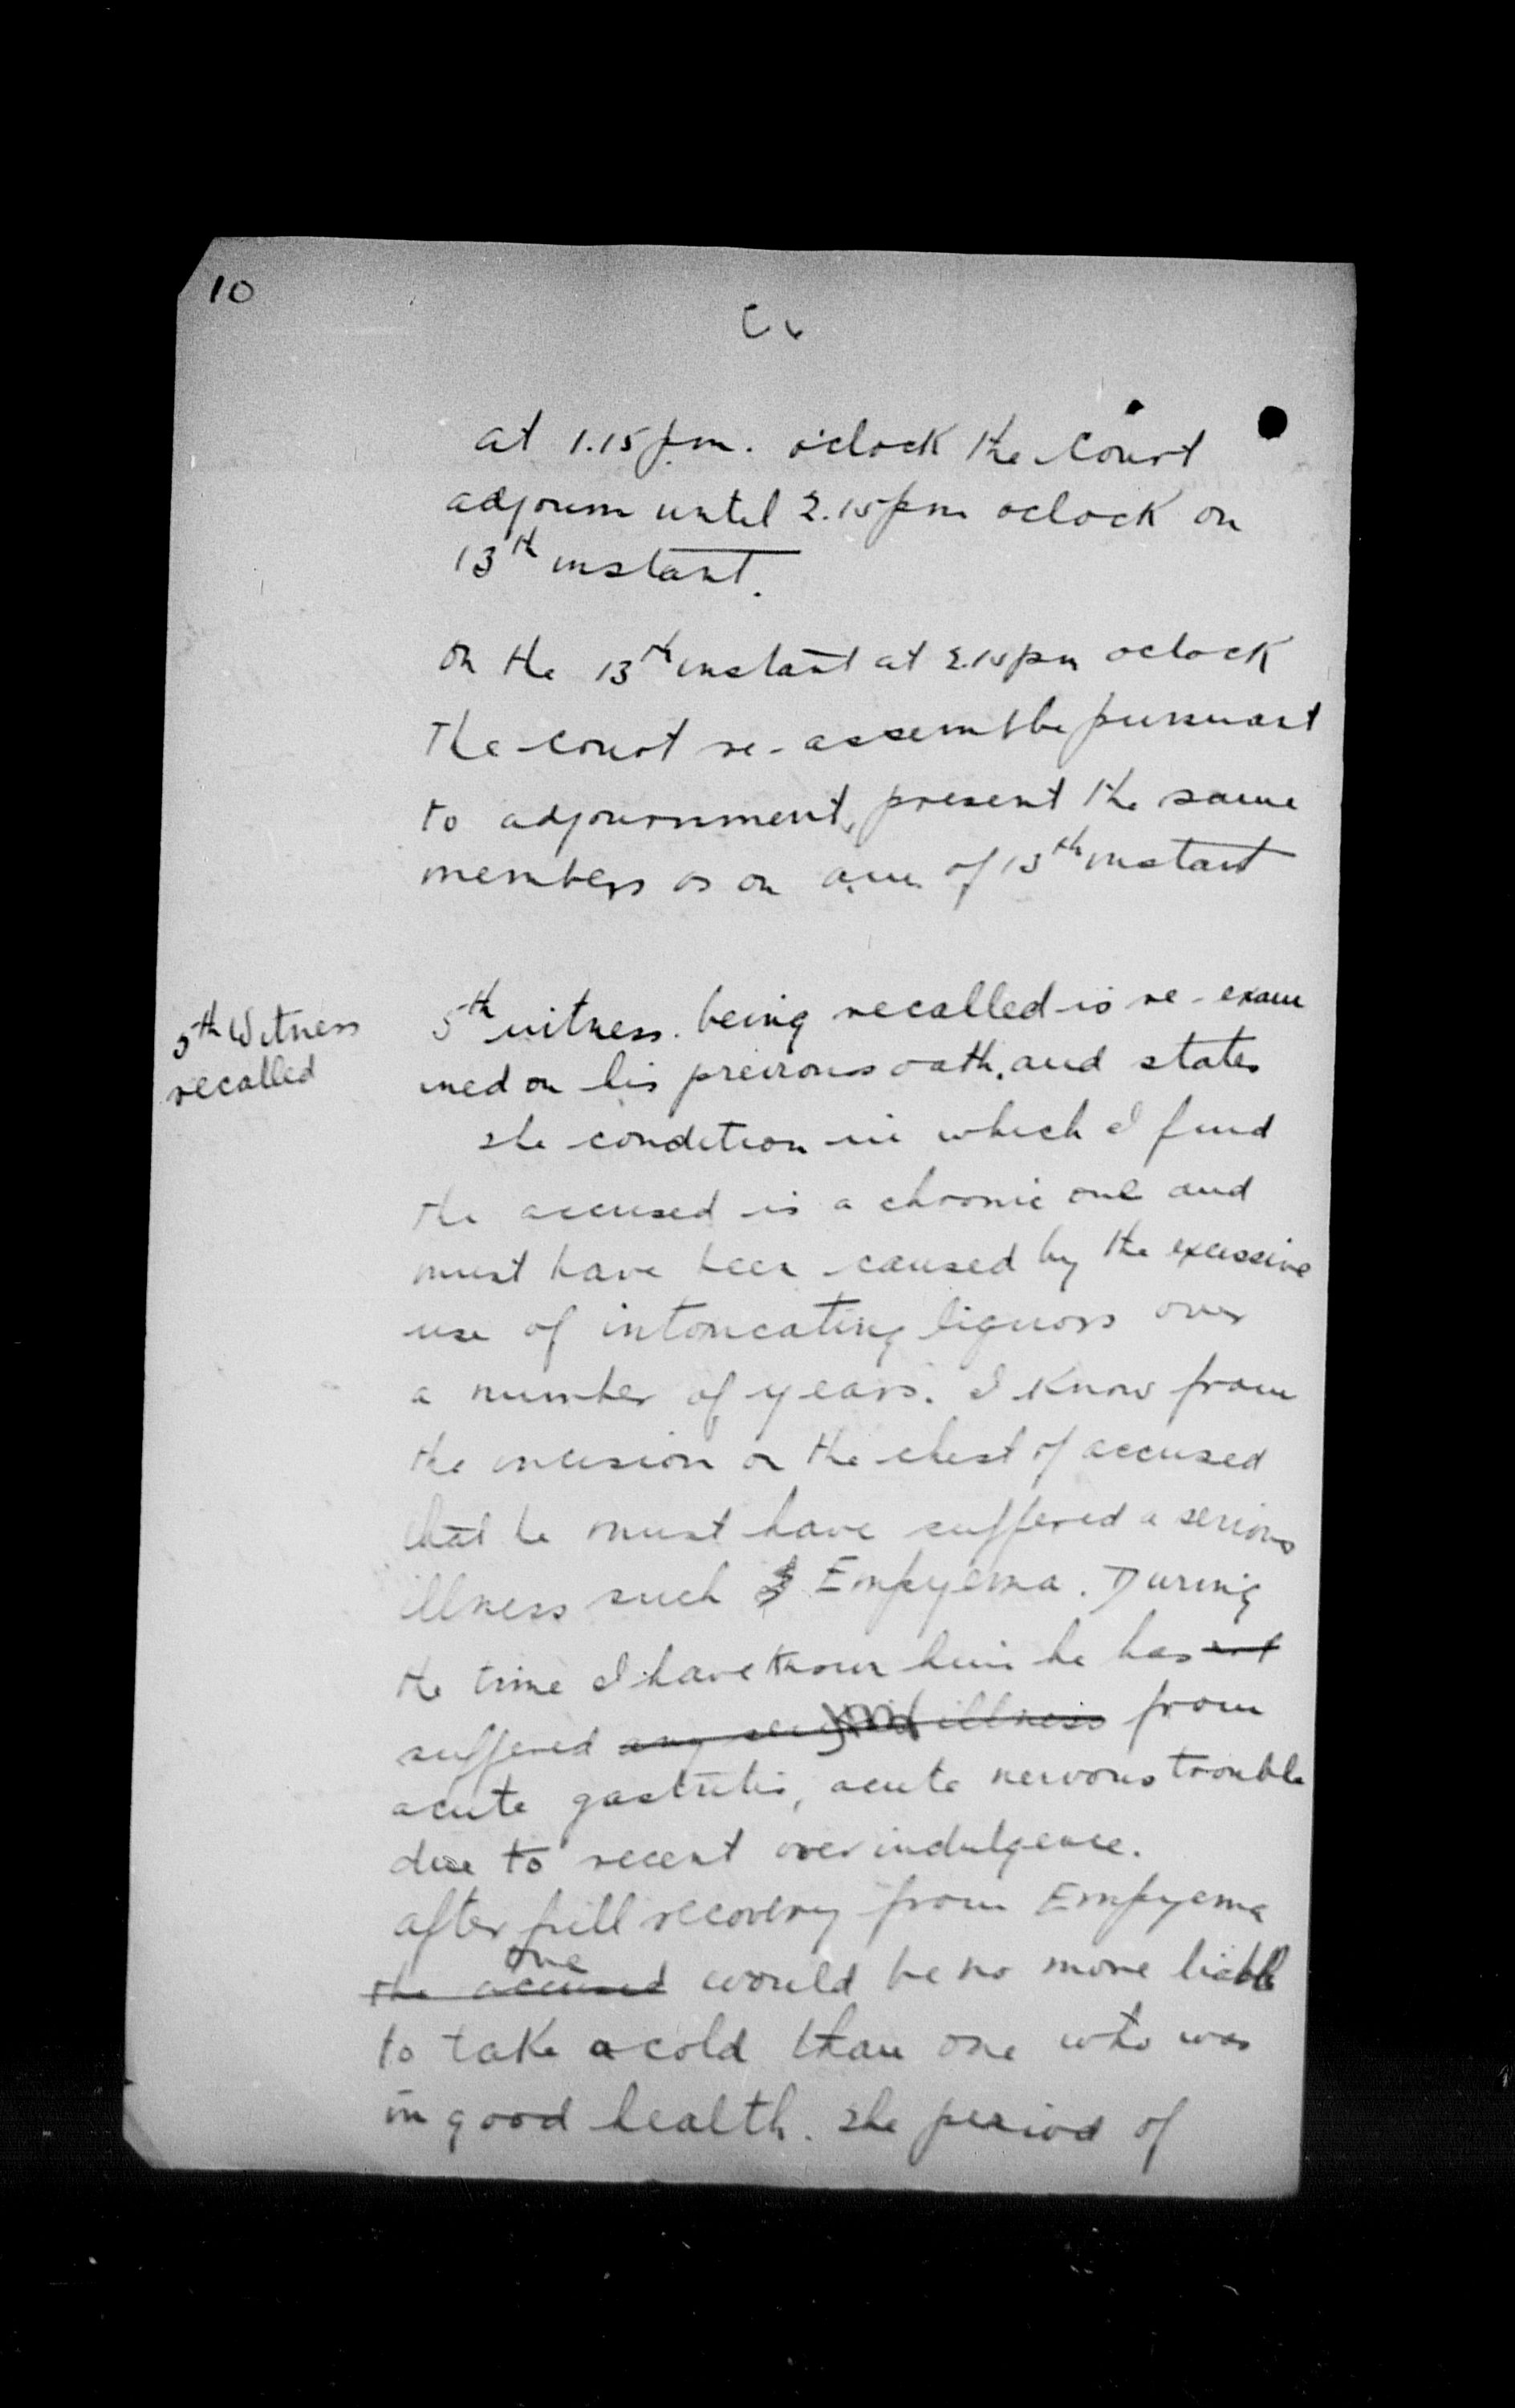 10
at 1.15 p.m. o'clock the Court
adjourn until 2.15 pm oclock on
13th instant.
On the 13th instant at 2.15 pm oclock
The court re-assemble pursuant
to adjournment, present the same
members as on a.m. of 13th instant
5th Witness
recalled
5th witness. being recalled is re-exam
ined on his previous oath, and states
The condition in which I find
the accused is a chronic one and
must have been caused by the excessive
use of intoxicating liquors over
a number of years. I know from
the incision on the chest of accused
that he must have suffered a serious
illness such as Empyema. During
the time I have known him he has not
suffered any illness from
acute gastritis, acute nervous trouble
due to recent over indulgence.
after full recovery from Empyema
one
the accused would be no more liable
to take a cold than one who was
in good health. The period of